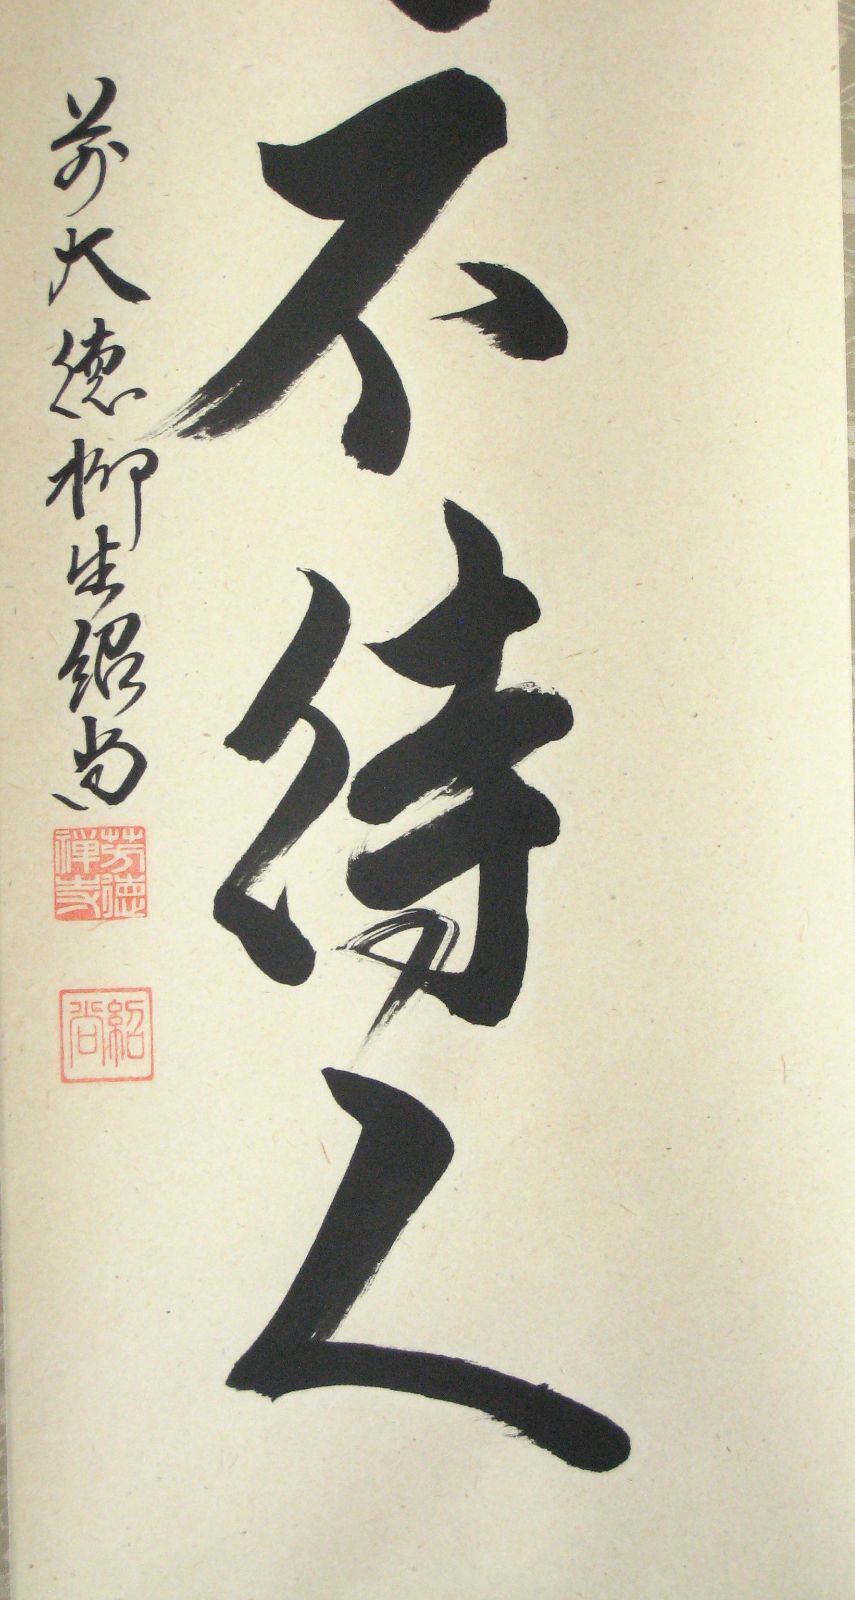 不待人
前大徳柳生紹尚
芳徳禅寺
紹尚